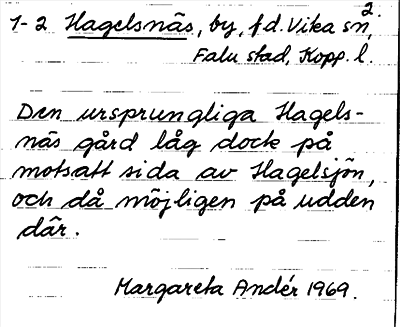 2.
1-2 Hagelsnäs, by, f d. Vika sn,
Falu stad, Kopp. l.
Den ursprungliga Hagels-
näs gård låg dock på
motsatt sida av Hagelsjön,
och då möjligen på udden
där.
Margareta Andér 1969.